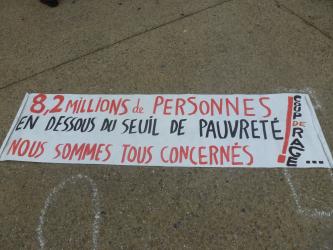 8,2 MILLIONS de PERSONNES
EN DESSOUS DU SEUIL DE PAUVRETÉ
NOUS SOMMES TOUS CONCERNÉS !
COUP
DE
RAGE...